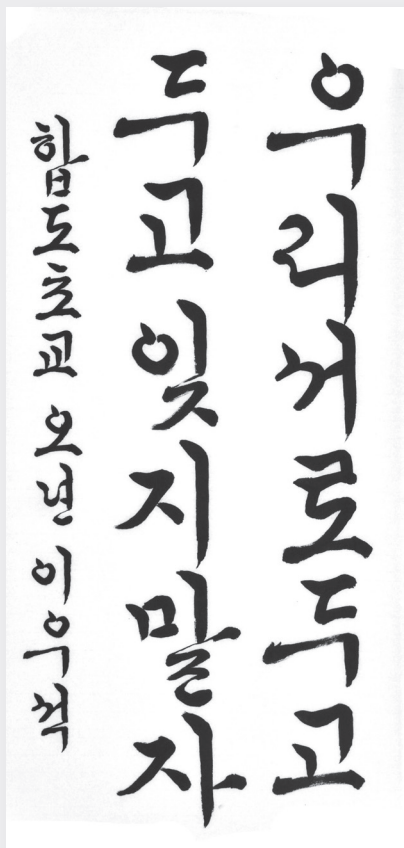 우리서로두고
두고잊지말자
합도초교 오년 이우석